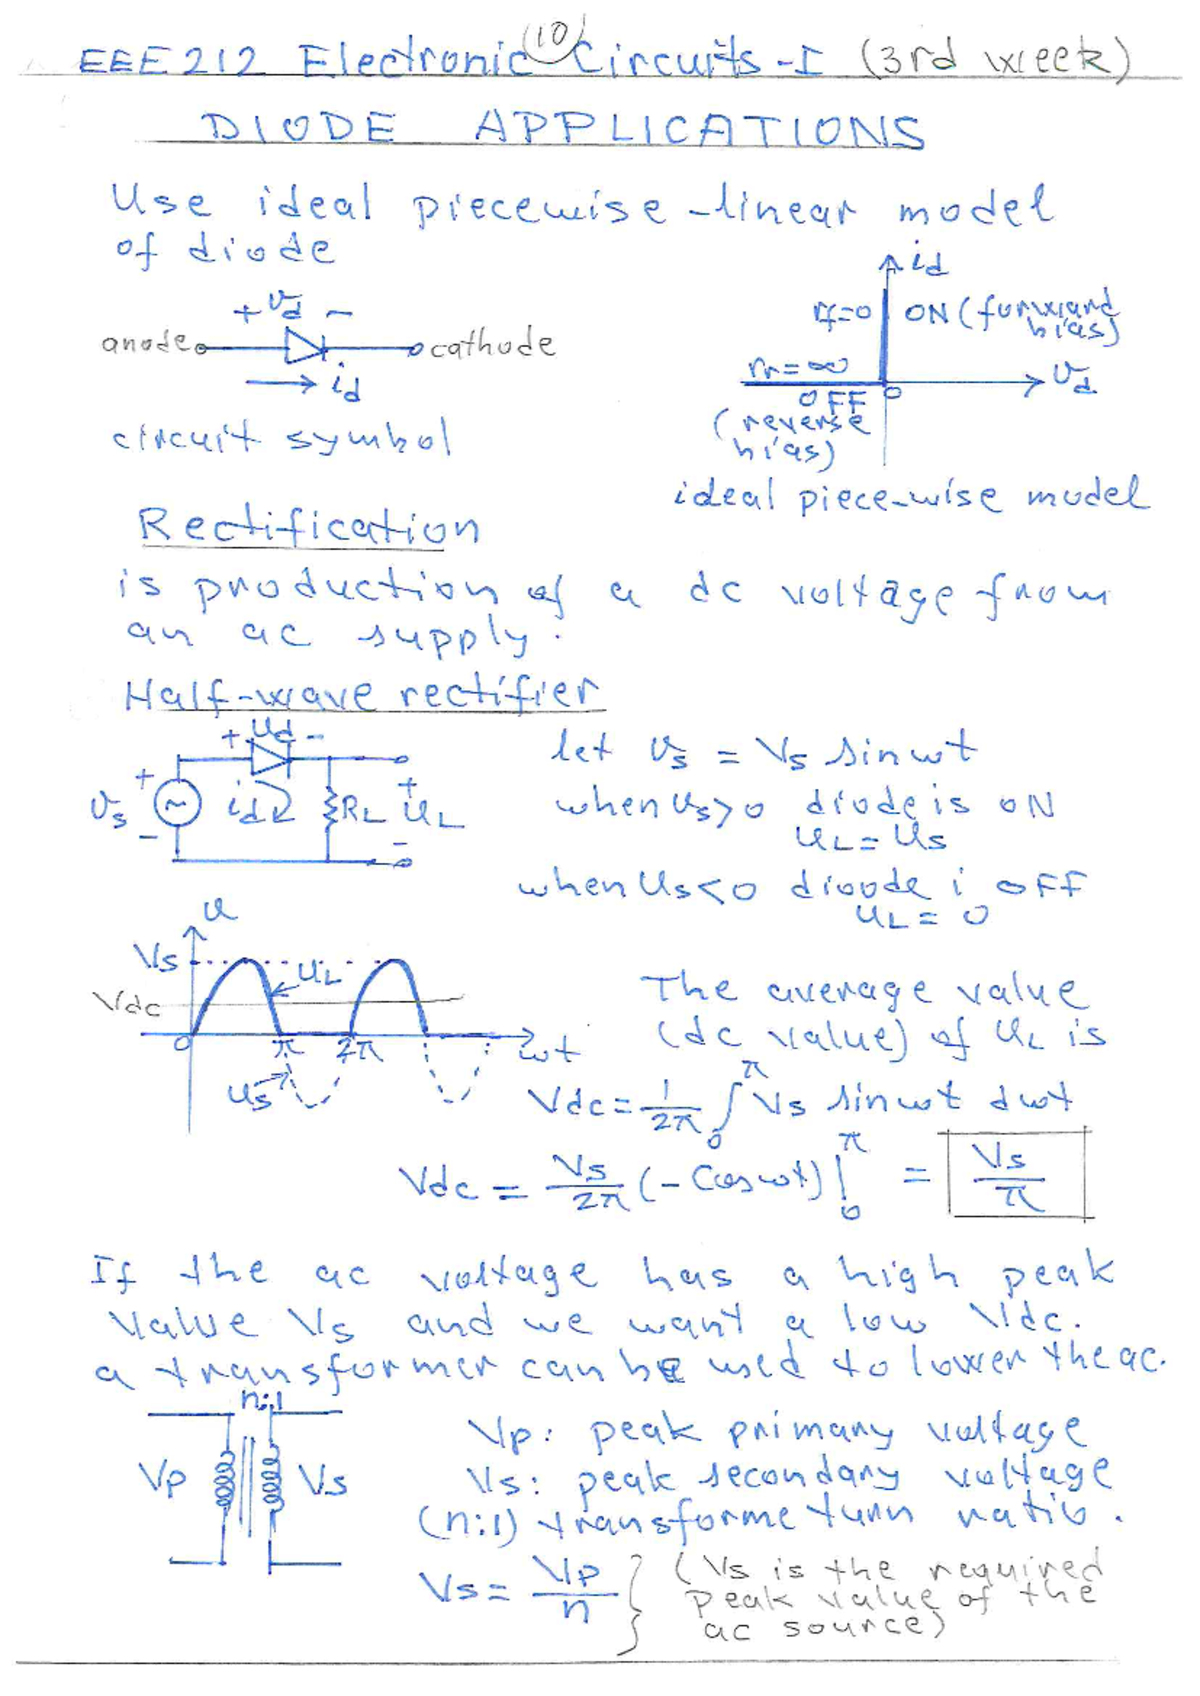 (10)
EEE212 Electronic Circuits-I (3rd week)
DIODE APPLICATIONS
Use ideal piecewise-linear model
of diode
+ vd -
anode cathode
id
circuit symbol
id
rf=0 ON (forward
bias)
rr=∞
vd
OFF 0
(reverse
bias)
ideal piece-wise model
Rectification
is production of a dc voltage from
an ac supply.
Half-wave rectifier
+ vd -
+ vs - id RL + vL -
let vs = Vs sinωt
when vs>0 diode is ON
vL = vs
when vs<0 dioode i OFF
vL = 0
v
Vs
vL
Vdc
0 π 2π ωt
vs
The average value
(dc value) of vL is
Vdc = 1/2π ∫0^π Vs sinωt dωt
Vdc = Vs/2π (-Cosωt)|0^π = Vs/π
If the ac voltage has a high peak
value Vs and we want a low Vdc.
a transformer can be used to lower the ac.
n:1
Vp Vs
Vp: peak primary voltage
Vs: peak secondary voltage
(n:1) transforme turn ratio.
Vs = Vp/n } (Vs is the required
peak value of the
ac source)